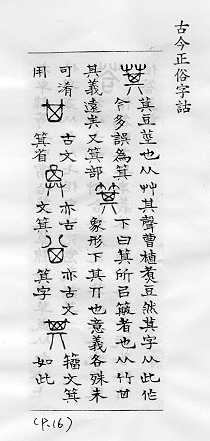 古今正俗字詁
萁豆莖也从艸其聲曹植煮豆然其字从此作
今多誤為箕 下曰箕所㠯簸者也从竹甘
其義遠矣又箕部 象形下其丌也意義各殊未
可淆 古文 亦古 亦古文 籀文箕
用 箕省 文箕 箕字 如此
(P.16)